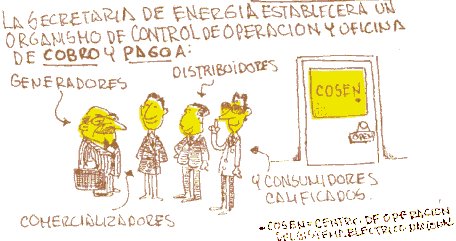 LA SECRETARIA DE ENERGIA ESTABLECERA UN
ORGANISMO DE CONTROL DE OPERACION Y OFICINA
DE COBRO Y PAGO A:
GENERADORES
DISTRIBUIDORES
COSEN
OPEN
COMERCIALIZADORES
Y CONSUMIDORES
CALIFICADOS.
COSEN= CENTRO DE OPERACION
DEL SISTEMA ELECTRICO NACIONAL